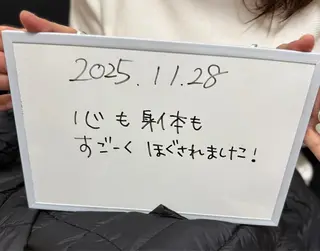 2025.11.28
心も身体も
すごーくほぐされました!